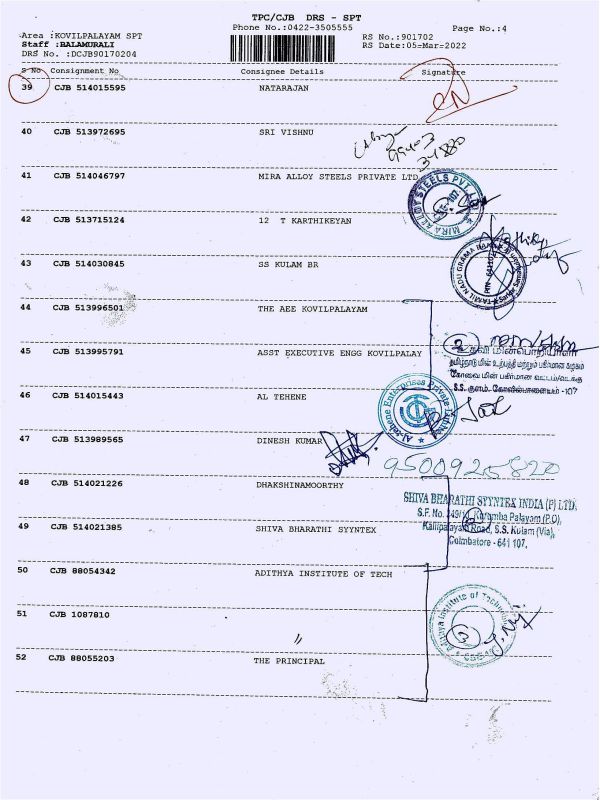 TPC/CJB DRS - SPT
Phone No.:0422-3505555 Page No.:4
Area :KOVILPALAYAM SPT RS No.:901702
Staff :BALAMURALI RS Date:05-Mar-2022
DRS No. :DCJB90170204
S No Consignment No Consignee Details Signature
39 CJB 514015595 NATARAJAN
40 CJB 513972695 SRI VISHNU
99403
34880
41 CJB 514046797 MIRA ALLOY STEELS PRIVATE LTD
MIRA ALLOY STEELS PVT LTD
42 CJB 513715124 12 T KARTHIKEYAN
43 CJB 514030845 SS KULAM BR
TAMIL NADU GRAMA
44 CJB 513996501 THE AEE KOVILPALAYAM
45 CJB 513995791 ASST EXECUTIVE ENGG KOVILPALAY
2
உதவி மின்பொறியாளர்
தமிழ்நாடு மின் உற்பத்தி மற்றும் பகிர்மான கழகம்
கோவை மின் பகிர்மான வட்டம்/வடக்கு
S.S. குளம். கோவில்பாளையம் -107
46 CJB 514015443 AL TEHENE
Al-tahene Enterprises Private Limited
47 CJB 513989565 DINESH KUMAR
9500925820
48 CJB 514021226 DHAKSHINAMOORTHY
SHIVA BHARATHI SYYNTEX INDIA (P) LTD,
S.F. No. 349/1, Kurumba Palayam (P.O),
Kallipalayam Road, S.S. Kulam (Via),
Coimbatore - 641 107.
49 CJB 514021385 SHIVA BHARATHI SYYNTEX
2
50 CJB 88054342 ADITHYA INSTITUTE OF TECH
Adithya Institute of Technology
51 CJB 1087810 〃
3
52 CJB 88055203 THE PRINCIPAL